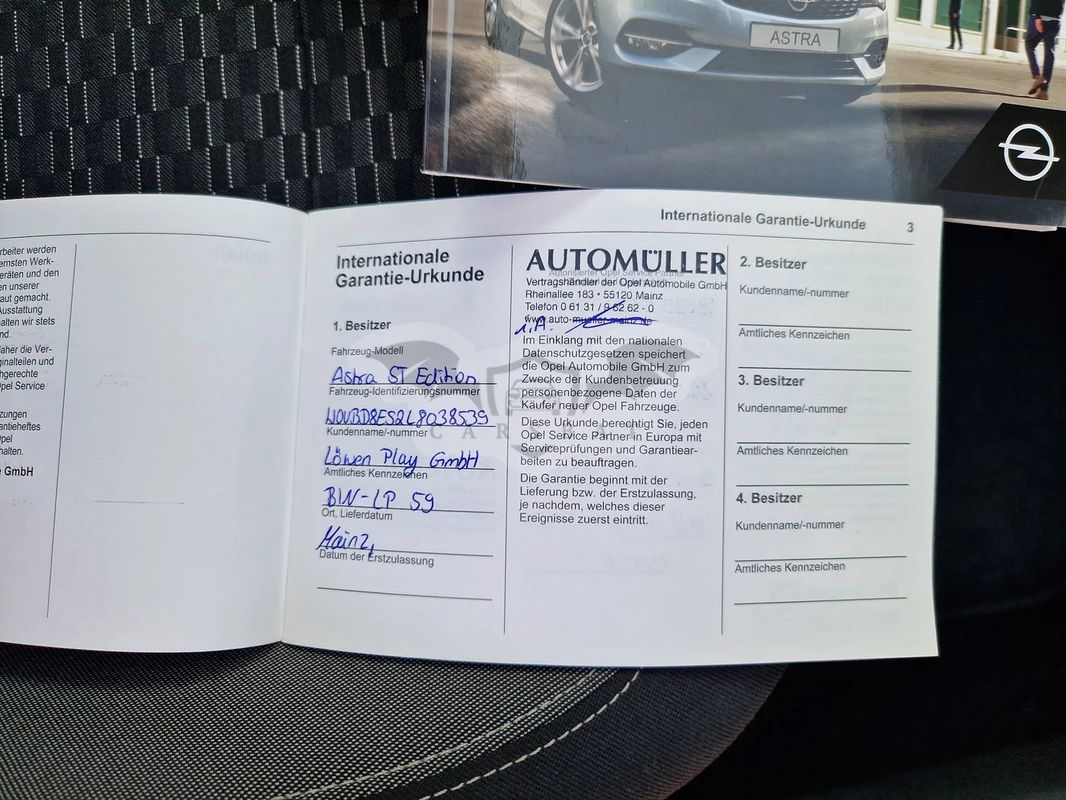 ASTRA
Internationale Garantie-Urkunde 3
rbeiter werden
ernsten Werk-
eräten und den
en unserer
aut gemacht.
Ausstattung
alten wir stets
nd.
aher die Ver-
ginalteilen und
hgerechte
pel Service
zungen
antieheftes
Opel
halten.
e GmbH
Internationale
Garantie-Urkunde
1. Besitzer
Fahrzeug-Modell
Astra ST Edition
Fahrzeug-Identifizierungsnummer
W0VBD8ES2L8038539
Kundenname/-nummer
Löwen Play GmbH
Amtliches Kennzeichen
BIN-LP 59
Ort, Lieferdatum
Mainz,
Datum der Erstzulassung
AUTOMÜLLER
Autorisierter Opel Service Partner
Vertragshändler der Opel Automobile GmbH
Rheinallee 183 • 55120 Mainz
Telefon 0 61 31 / 9 62 62 - 0
www.auto-mueller-mainz.de
i.A.
Im Einklang mit den nationalen
Datenschutzgesetzen speichert
die Opel Automobile GmbH zum
Zwecke der Kundenbetreuung
personenbezogene Daten der
Käufer neuer Opel Fahrzeuge.
Diese Urkunde berechtigt Sie, jeden
Opel Service Partner in Europa mit
Serviceprüfungen und Garantiear-
beiten zu beauftragen.
Die Garantie beginnt mit der
Lieferung bzw. der Erstzulassung,
je nachdem, welches dieser
Ereignisse zuerst eintritt.
2. Besitzer
Kundenname/-nummer
Amtliches Kennzeichen
3. Besitzer
Kundenname/-nummer
Amtliches Kennzeichen
4. Besitzer
Kundenname/-nummer
Amtliches Kennzeichen